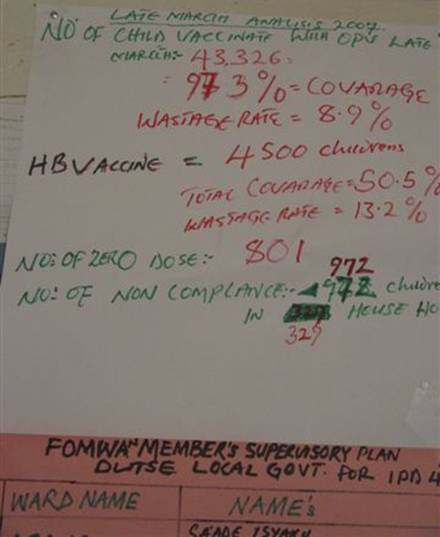 LATE MARCH ANALYSIS 2007
NO OF CHILD VACCINATE WITH OPV LATE
MARCH:- 43,326.
= 97 3% = COVARAGE
WASTAGE RATE = 8.9%
HB VACCINE = 4500 childrens
TOTAL COVARAGE = 50.5%
WASTAGE RATE = 13.2%
NO: OF ZERO DOSE:- 801
972
NO: OF NON COMPLIANCE:- 972 childre
IN HOUSE HO
329
FOMWAN MEMBER'S SUPERVISORY PLAN
DUTSE LOCAL GOVT. FOR IPD 4
WARD NAME NAME'S
SAADE ISYAKU